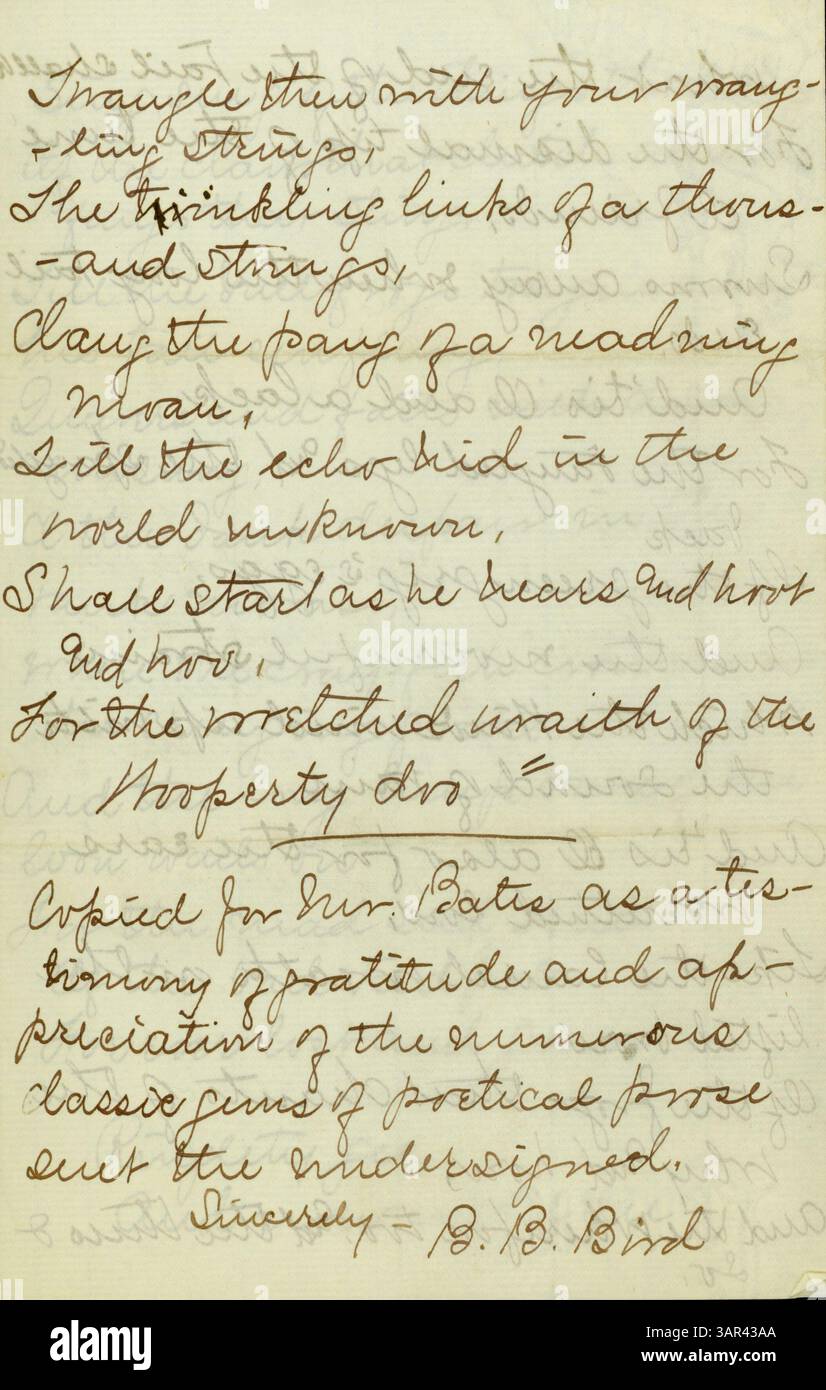 Twangle then with your wrang-
-ling strings,
The trinkling links of a thous-
-and strings,
Clang the pang of a madning
moan,
Till the echo hid in the
world unknown,
Shall start as he hears and hoot
and hoo,
For the wretched wraith of the
Hooperty doo"
Copied for Mr. Bates as a tes-
timony of gratitude and ap-
preciation of the numerous
classic gems of poetical prose
sent the undersigned.
Sincerely - B. B. Bird
alamy
Image ID: 3AR43AA
www.alamy.com